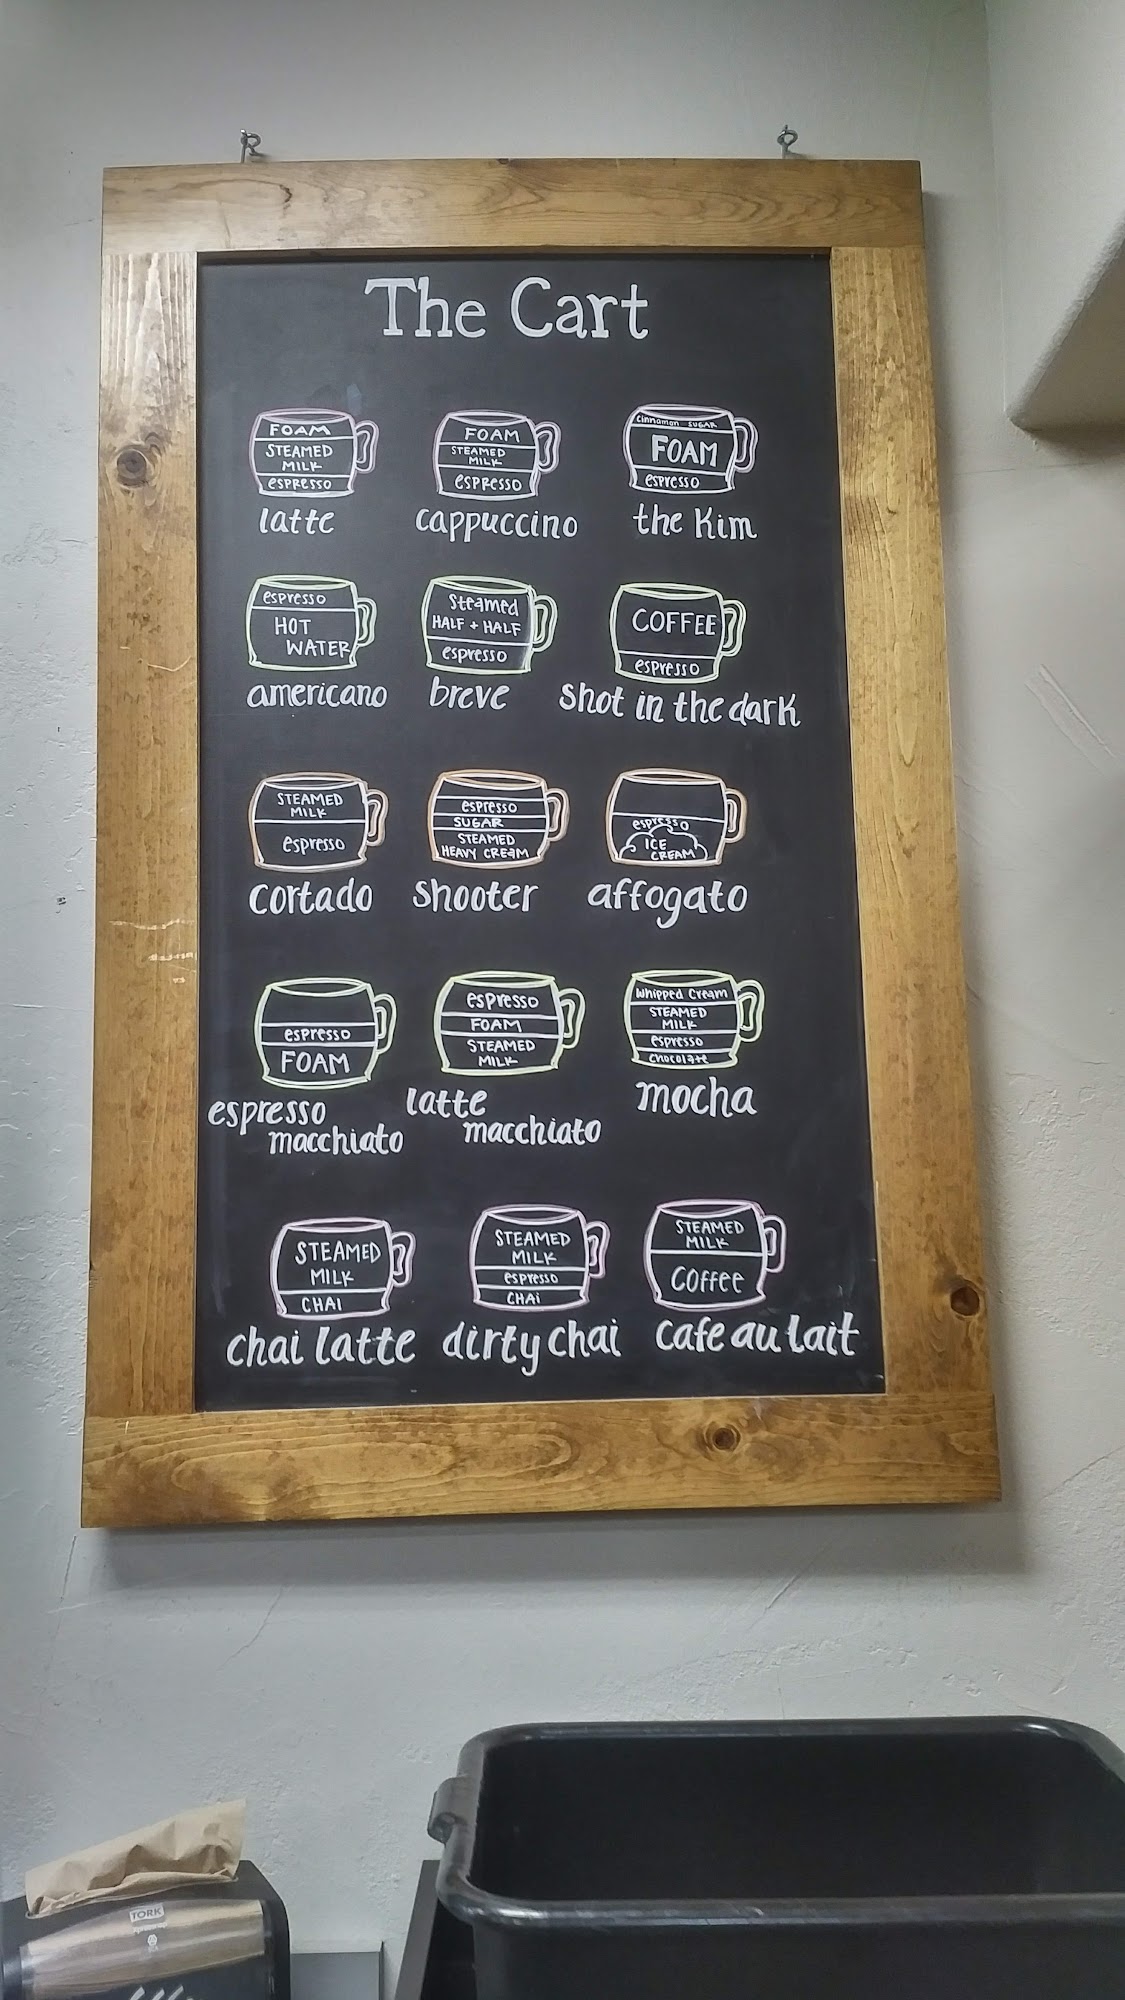 The Cart
FOAM
STEAMED
MILK
espresso
latte
FOAM
STEAMED
MILK
espresso
cappuccino
cinnamon SUGAR
FOAM
espresso
the Kim
espresso
HOT
WATER
americano
Steamed
HALF + HALF
espresso
breve
COFFEE
espresso
shot in the dark
STEAMED
MILK
espresso
cortado
espresso
SUGAR
STEAMED
HEAVY CREAM
shooter
espresso
ICE
CREAM
affogato
espresso
FOAM
espresso
macchiato
espresso
FOAM
STEAMED
MILK
latte
macchiato
whipped Cream
STEAMED
MILK
espresso
chocolate
mocha
STEAMED
MILK
CHAI
chai latte
STEAMED
MILK
espresso
CHAi
dirty chai
STEAMED
MILK
Coffee
cafe au lait
TORK